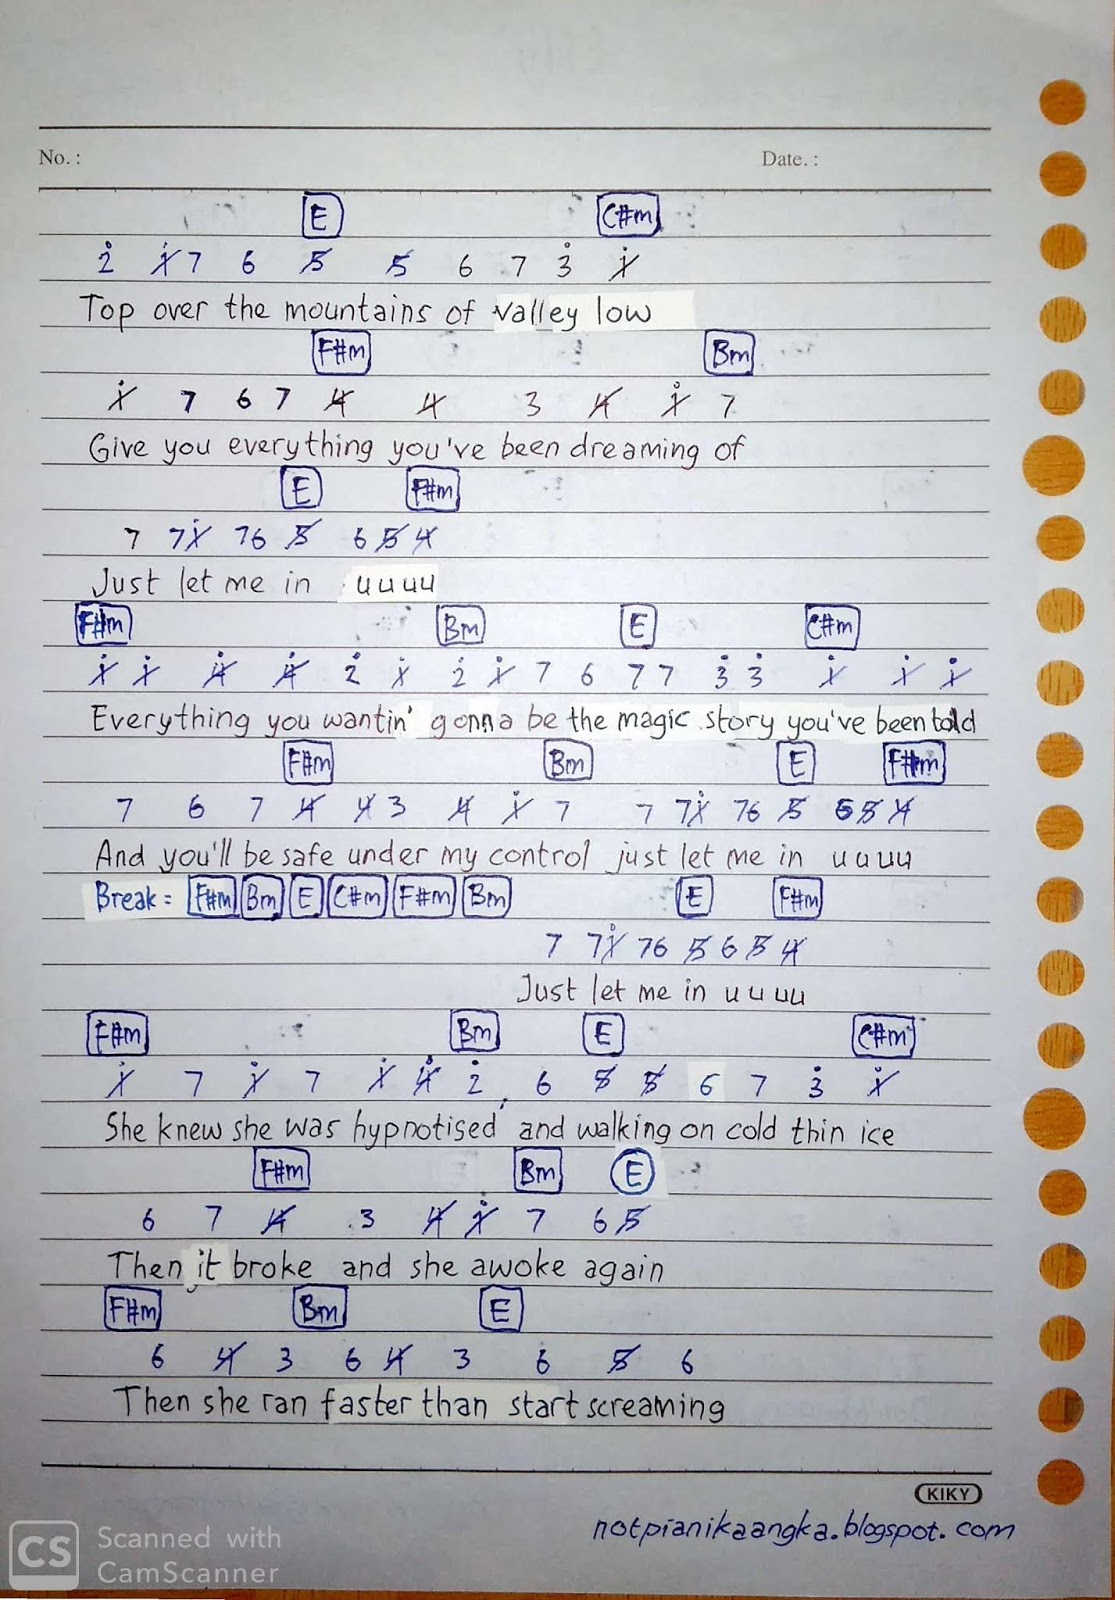 No. : Date. :
E C#m
2̇ 1̸̇ 7 6 5̸ 5̸ 6 7 3̇ 1̸̇
Top over the mountains of valley low
F#m Bm
1̸̇ 7 6 7 4̸ 4̸ 3 4̸ 1̸̇ 7
Give you everything you've been dreaming of
E F#m
7 71̸̇ 76 5̸ 6 5̸ 4̸
Just let me in uuuu
F#m Bm E C#m
1̸̇ 1̸̇ 4̸̇ 4̸̇ 2̇ 1̸̇ 2̇ 1̸̇ 7 6 7 7 3̇ 3̇ 1̸̇ 1̸̇ 1̸̇
Everything you wantin' gonna be the magic story you've been told
F#m Bm E F#m
7 6 7 4̸ 4̸ 3 4̸ 1̸̇ 7 7 71̸̇ 76 5̸ 6 5̸ 4̸
And you'll be safe under my control just let me in uuuu
Break = F#m Bm E C#m F#m Bm E F#m
7 71̸̇ 76 5̸ 6 5̸ 4̸
Just let me in uuuu
F#m Bm E C#m
1̸̇ 7 1̸̇ 7 1̸̇ 4̸̇ 2̇ 6 5̸ 5̸ 6 7 3̇ 1̸̇
She knew she was hypnotised and walking on cold thin ice
F#m Bm E
6 7 4̸ 3 4̸ 1̸̇ 7 6 5̸
Then it broke and she awoke again
F#m Bm E
6 4̸ 3 6 4̸ 3 6 5̸ 6
Then she ran faster than start screaming
KIKY
notpianikaangka.blogspot.com
CS Scanned with
CamScanner